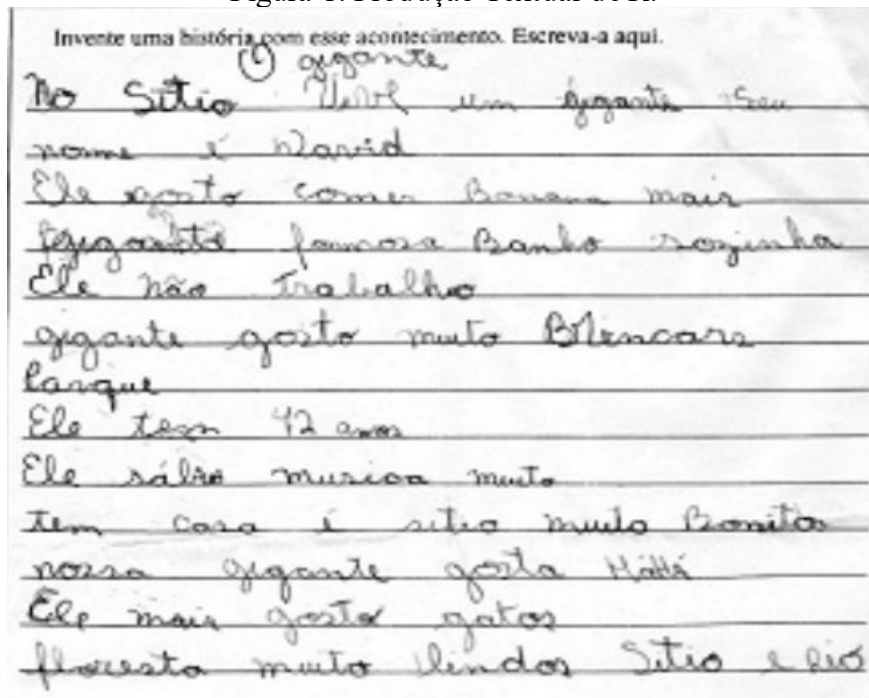 Invente uma história com esse acontecimento. Escreva-a aqui.
O gigante
No Sitio vive um gigante seu
nome é David
Ele gosto comer Banana mais
gigante famosa Banho sozinha
Ele não Trabalho
gigante gosto muto Brincars
Parque
Ele tem 42 anos
Ele sábio musica muto
tem casa é sitio muito Bonitos
nossa gigante gosta
Ele mais gosto gatos
floresta muito lindos Sitio e Rio